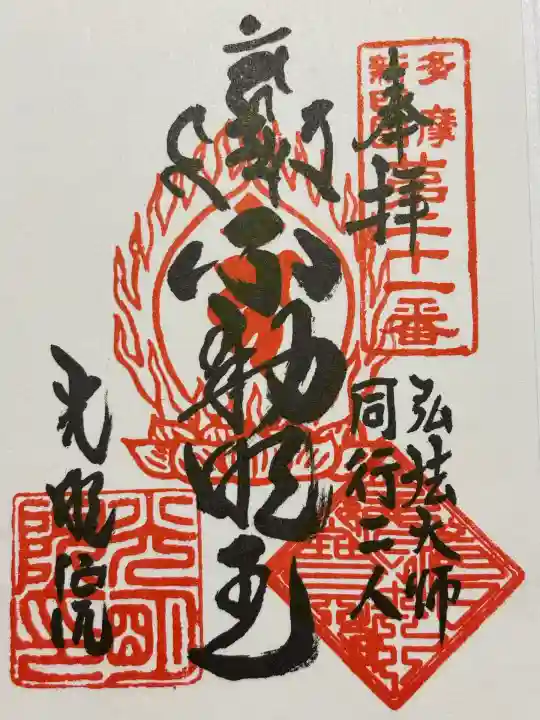 奉拝
多摩
新四国
第二十一番
弘法大師
同行二人
不動明王
光明院
光明院印